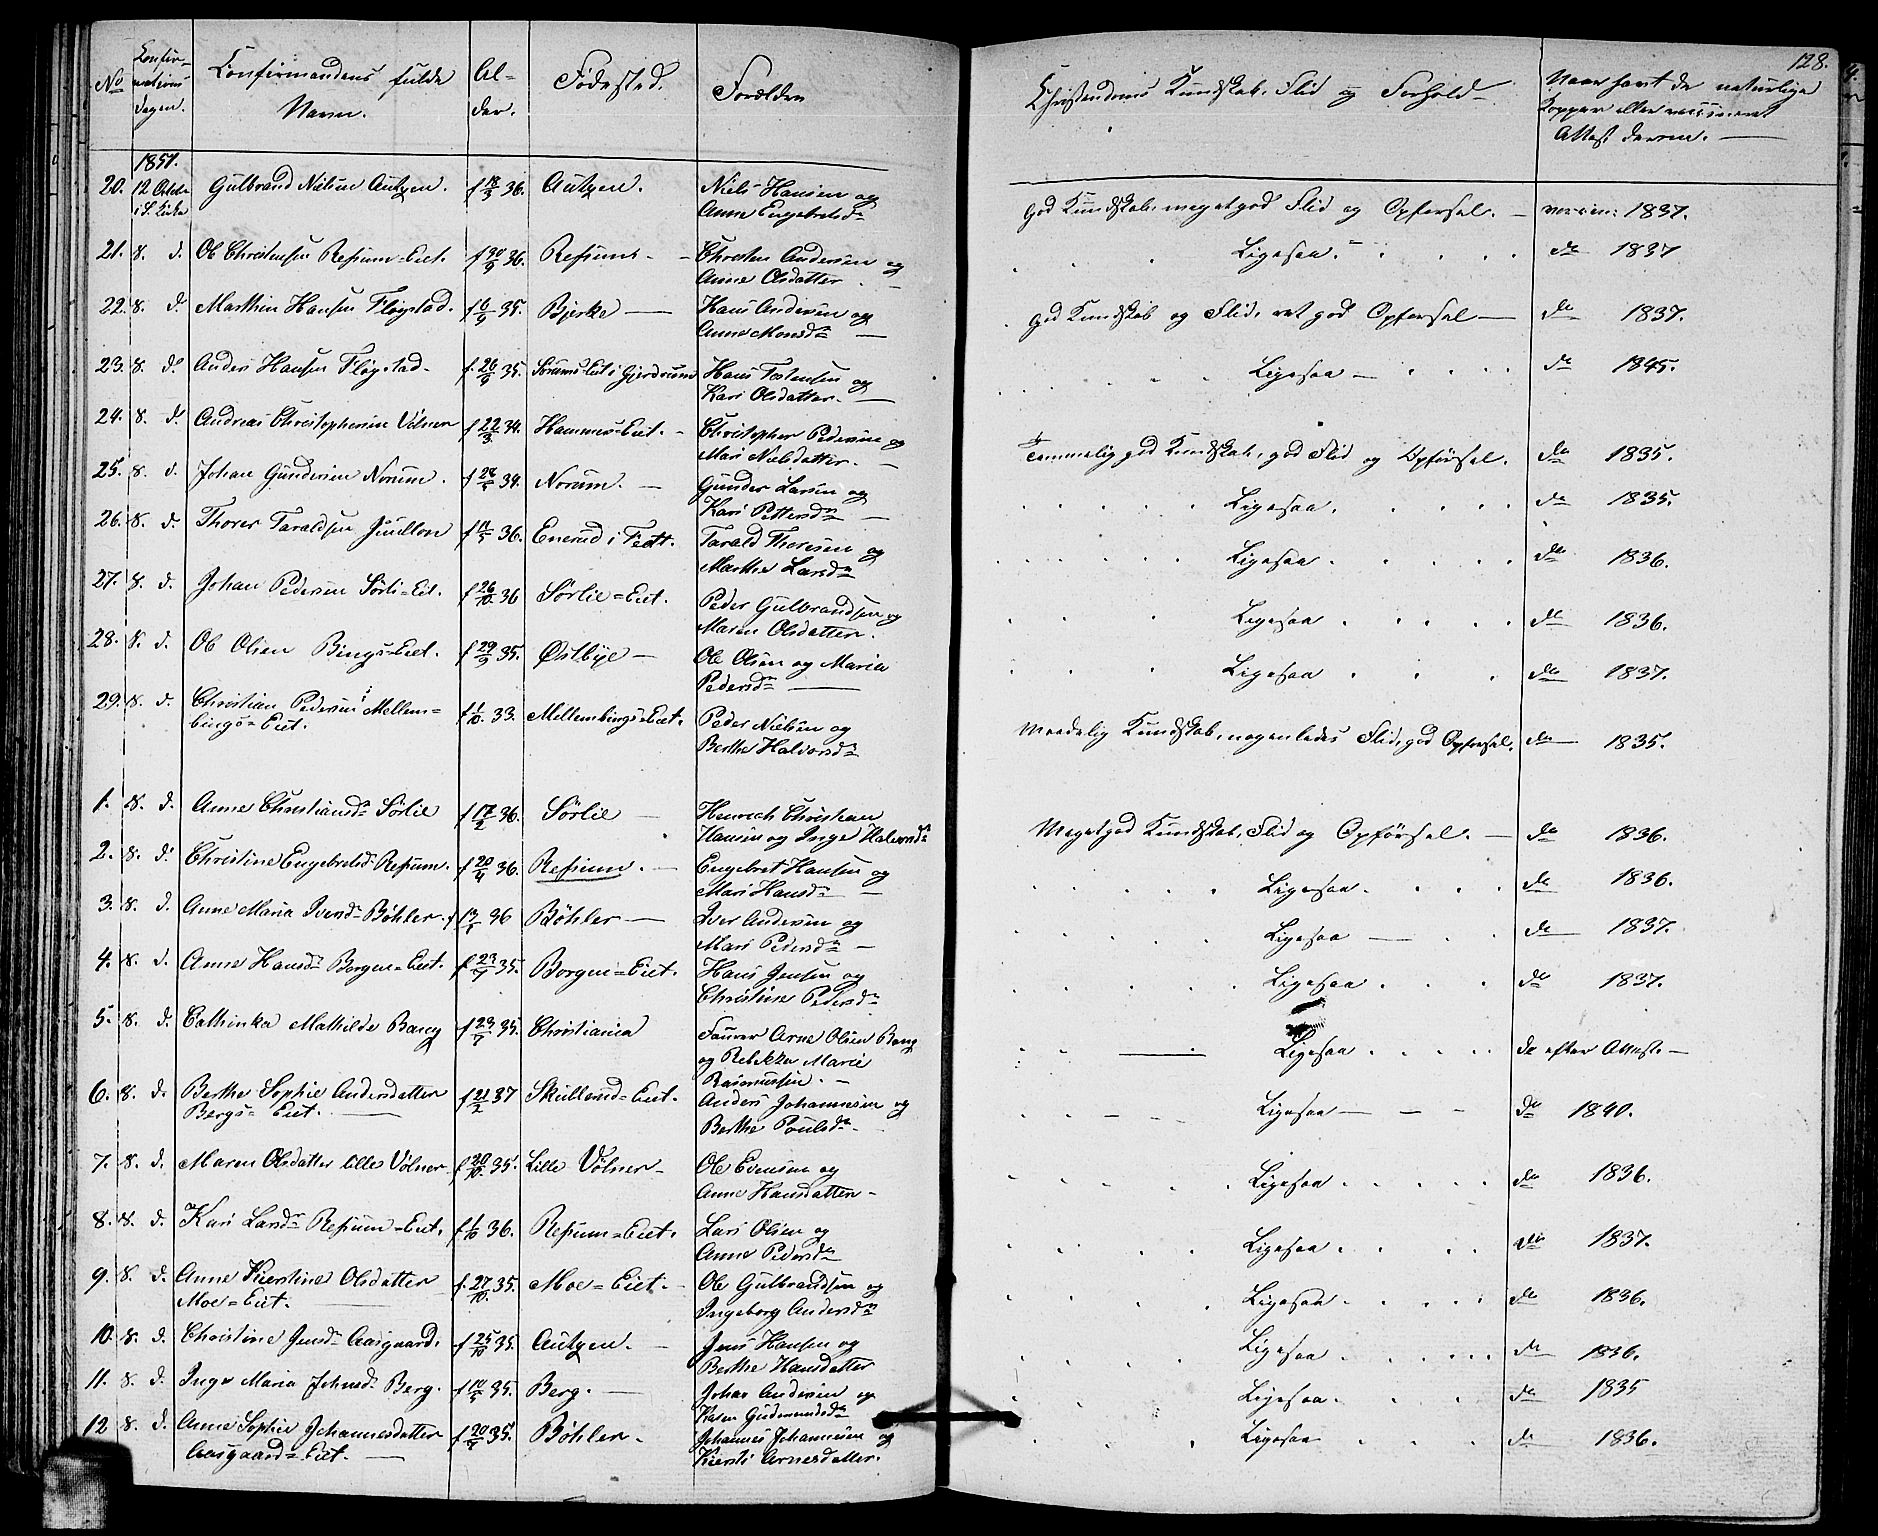 128.
No Confirmations dagen. Confirmandens fulde Navn. Alder. Fødested. Forældre Christendoms Kundskab, Flid og Forhold Naar havt de naturlige Kopper eller vaccineret Attest derom.
1851.
20. 12 Octobr i S. Kirke Gulbrand Nielsen Autzen. f 18/3 36. Autzen. Niels Hansen og Anne Engebretsd. god Kundskab, meget god Flid og Opførsel. vaccin: 1837.
21. S. d. Ole Christensen Refsum=Eiet. f 30/9 36. Refsums Christen Andersen og Anne Olsdatter Ligesaa. do 1837
22. S. d. Marthin Hansen Fløgstad. f 6/9 35. Bjerke Hans Andersen og Anne Monsdr god Kundskab og Flid, ret god Opførsel do 1837.
23. S. do Anders Hansen Fløgstad. f. 26/9 35. Sørums=Eiet i Gjerdrum Hans Tostensen og Kari Olsdatter. Ligesaa do 1845.
24. S. d. Andreas Christophersen Vølner f 22/3 34. Hammer=Eiet. Christopher Pedersen og Mari Nielsdatter. Temmelig god Kundskab, god Flid og Opførsel. do 1835.
25. S. d. Johan Gundersen Norum. 34. Norum. Gunder Larsen og Kari Pettersdr Ligesaa. do 1835.
26. S. d. Thorer Taraldsen 36. Enerud i Fedt. Tarald Thoresen og Marthe Larsdr Ligesaa do 1836.
27. S. d. Johan Pedersen Sørli=Eit. f 26/10 36 Sørlie=Eiet. Peder Gulbrandsen og Maren Olsdatter. Ligesaa do 1836.
28. S. d. Ole Olsen Bings=Eiet. f 29/9 35. Østbye Ole Olsen og Maria Pedersdr Ligesaa do 1837.
29. S. d. Christian Pedersen Mellem=bings=Eiet. f 1/10 33. Mellembings=Eiet. Peder Nielsen og Berthe Halvorsdr Maadelig Kundskab, nogenledes Flid, god Opførsel. do 1835.
1. S. d. Anne Christiansdr Sørlie f 17/2 36. Sørlie Henrich Christian Hansen og Inge Halvorsdr Meget god Kundskab, Flid og Opførsel. do 1836.
2. S. d. Christine Engebretsdr Refsum. f 20/4 36. Refsum. Engebret Hansen og Mari Hansdr Ligesaa. do 1836.
3. S. d. Anne Maria Iversdr Bøhler. 36 Bøhler Iver Andersen og Mari Pedersdr Ligesaa do 1837.
4. S. d. Anne Hansdr Borgen=Eiet. f. 35. Borgen=Eiet. Hans Jensen og Christine Pedersdr Ligesaa do 1837.
5. S. d. Cathinka Mathilde Bang f 23/7 35. Christiania Arne Olsen Bang og Rebekka Marie Rasmussen. Ligesaa do efter Attest.
6. S. d. Berthe Sophie Andersdatter Bergs=Eiet. f 21/2 37 Skullerud=Eiet. Anders Johannesen og Berthe Poulsdr Ligesaa do 1840.
7. S. d. Maren Olsdatter lille Vølner f 20/10 35. Lille Vølner Ole Evensen og Anne Hansdatter Ligesaa do 1836.
8. S. d. Kari Larsdr Refsum=Eiet. f. 1/10 36. Refsum=Eiet. Lars Olsen og Anne Pedersdr Ligesaa do 1837.
9. S. d. Anne Kierstine Olsdatter Moe=Eiet. f. 27/10 35. Moe=Eiet. Ole Gulbrandsen og Ingeborg Andersdr Ligesaa do 1836.
10. S. d. Christine Jensdr Aasgaard. f 25/10 35. Autzen. Jens Hansen og Berthe Hansdatter Ligesaa do 1836.
11. S. d. Inger Maria Johnsdr Berg. 35. Berg. Johan Andersen og Karen Gudmundsdr Ligesaa do 1835
12 S. d. Anne Sophie Johannesdatter Aasgaard=Eiet. 35. Bøhler. Johannes Johannesen og Kiersti Arnesdatter. Ligesaa do 1836.